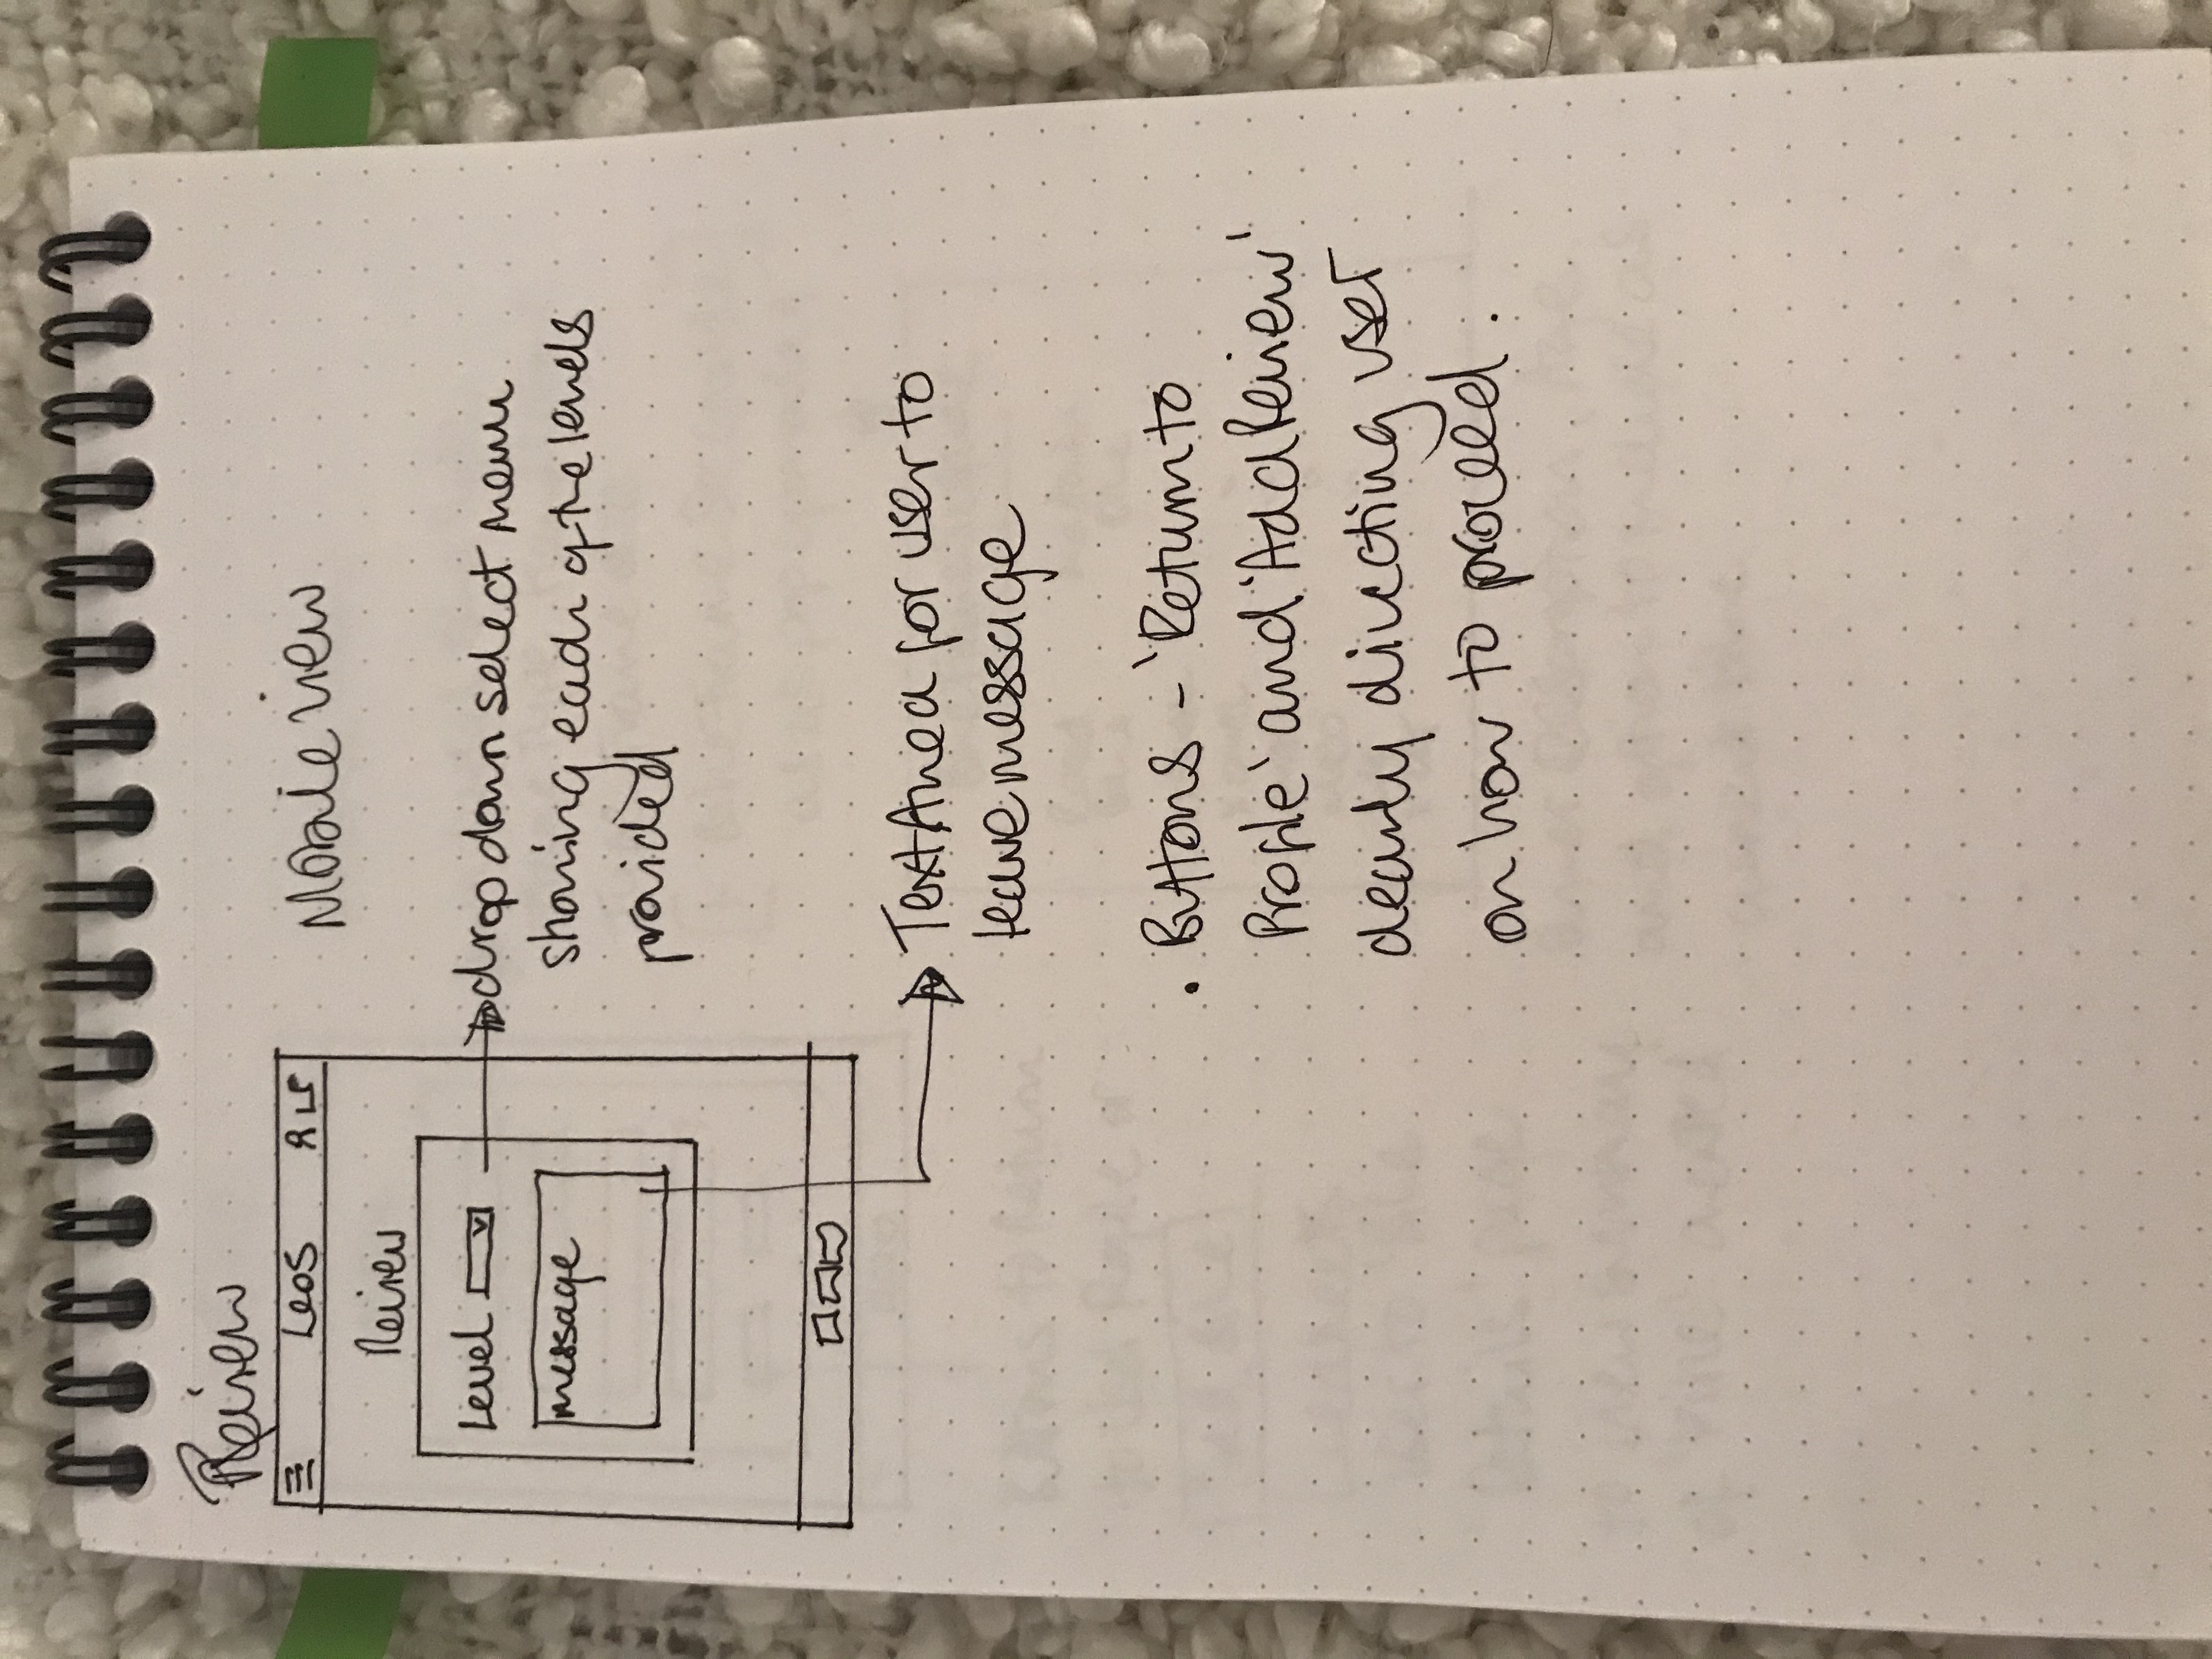 Review
Leos
Mobile view
Review
Level
drop down select menu
message
showing each of the levels
provided
TextArea for user to
leave message
. Buttons - 'Return to
Profile' and 'Add Review'
clearly directing user
on how to proceed.